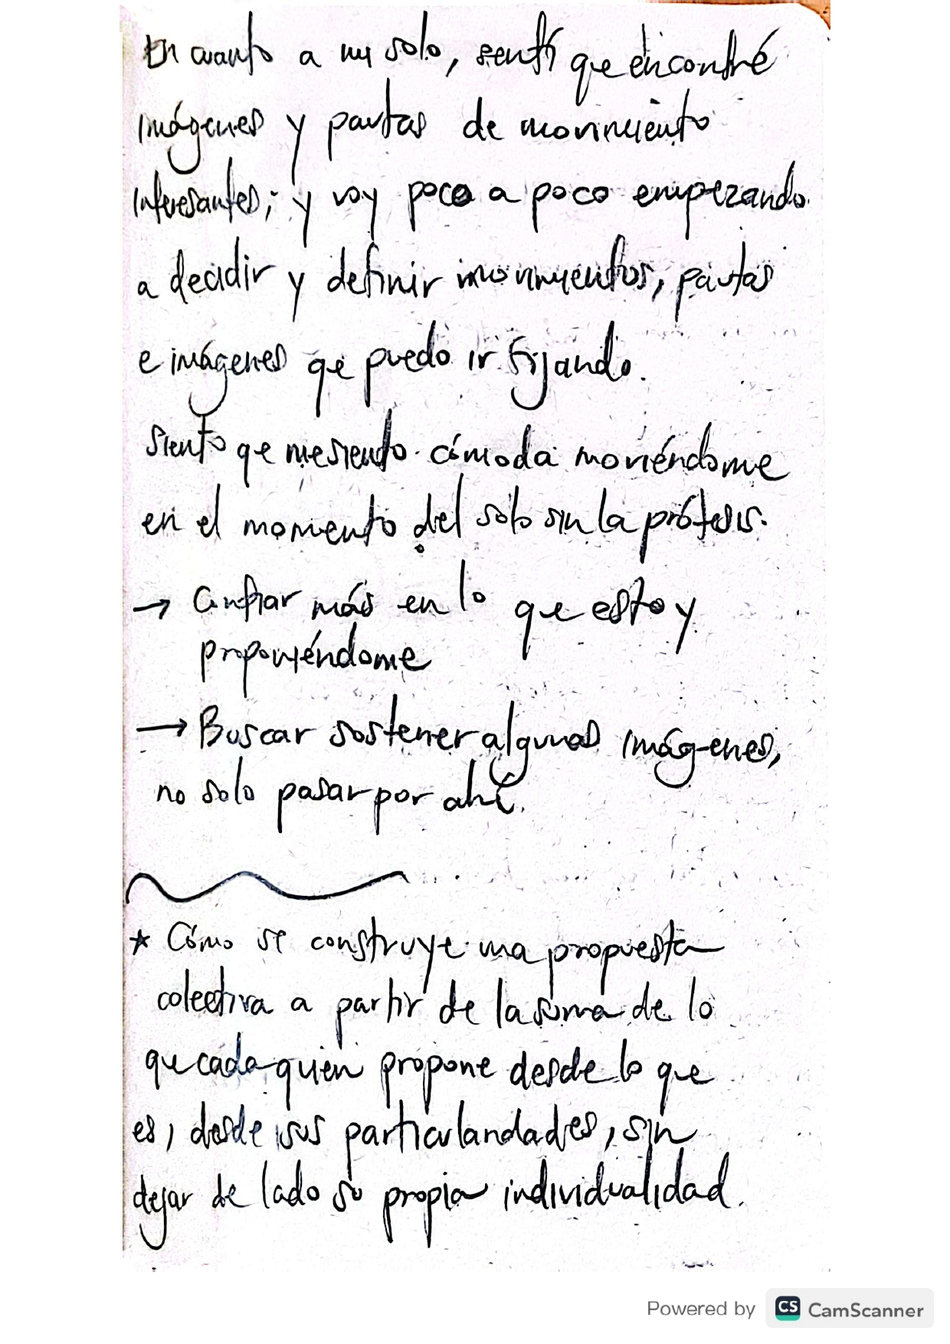 En cuanto a mi solo, sentí que encontré
imágenes y pautas de movimiento
interesantes; y voy poco a poco empezando
a decidir y definir movimientos, pautas
e imágenes qe puedo ir fijando.
Siento qe me siento cómoda moviéndome
en el momento del solo sin la prótesis.
→ Confiar más en lo que estoy
proponiéndome
→ Buscar sostener algunas imágenes,
no solo pasar por ahí.
* Cómo se construye una propuesta
colectiva a partir de la suma de lo
que cada quien propone desde lo que
es, desde sus particularidades, sin
dejar de lado su propia individualidad.
Powered by CS CamScanner